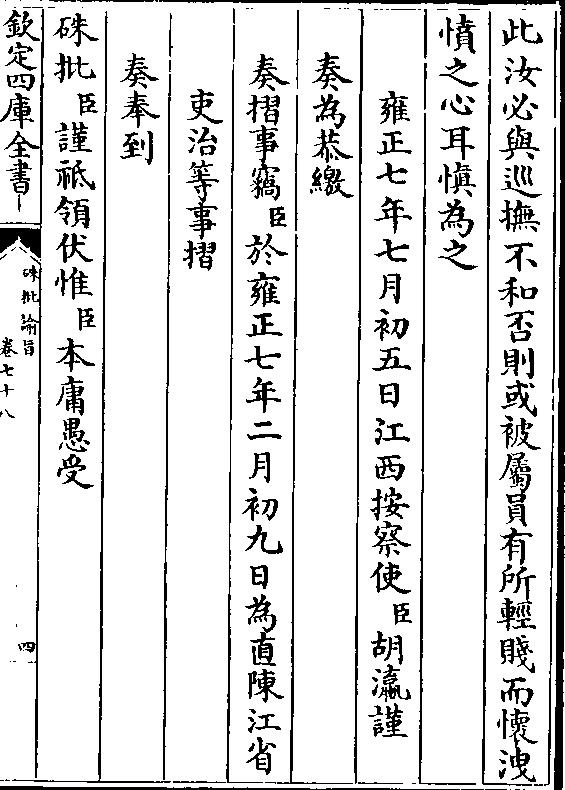 此汝必與巡撫不和否則或被屬員有所輕賤而懷洩
憤之心耳慎為之
雍正七年七月初五日江西按察使臣胡瀛謹
奏為恭繳
奏摺事竊臣於雍正七年二月初九日為直陳江省
吏治等事摺
奏奉到
硃批臣謹祗領伏惟臣本庸愚受
欽定四庫全書
硃批諭旨
卷七十八
四